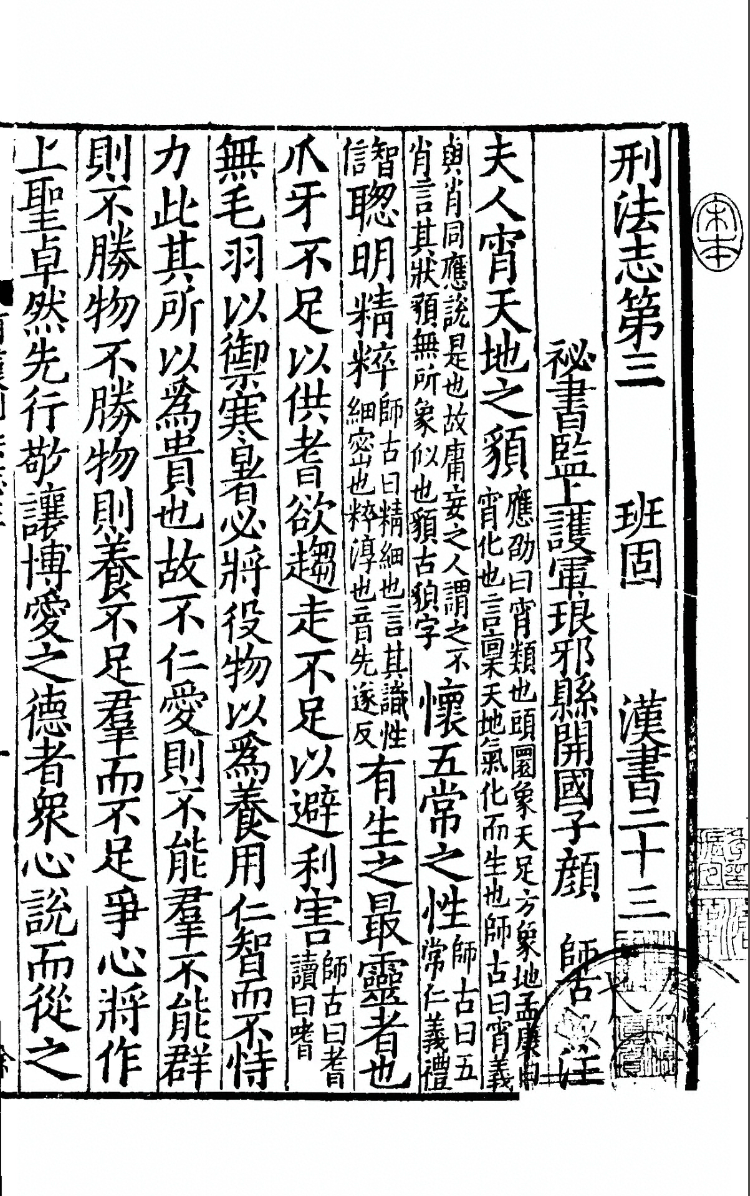 刑法志第三　班固　漢書二十三
祕書監上護軍琅邪縣開國子顏　師古注
夫人宵天地之䫉應劭曰宵類也頭圜象天足方象地孟康曰宵化也言稟天地氣化而生也師古曰宵義
與肖同應說是也故庸妄之人謂之不肖言其狀䫉無所象似也䫉古貌字懷五常之性師古曰五常仁義禮
智信聦明精粹師古曰精細也言其識性細密也粹淳也音先遂反有生之最靈者也
爪牙不足以供耆欲趨走不足以避利害師古曰耆讀曰嗜
無毛羽以禦寒暑必將役物以爲養用仁智而不恃
力此其所以爲貴也故不仁愛則不能羣不能群
則不勝物不勝物則養不足羣而不足爭心將作
上聖卓然先行敬讓博愛之德者衆心說而從之
宋本